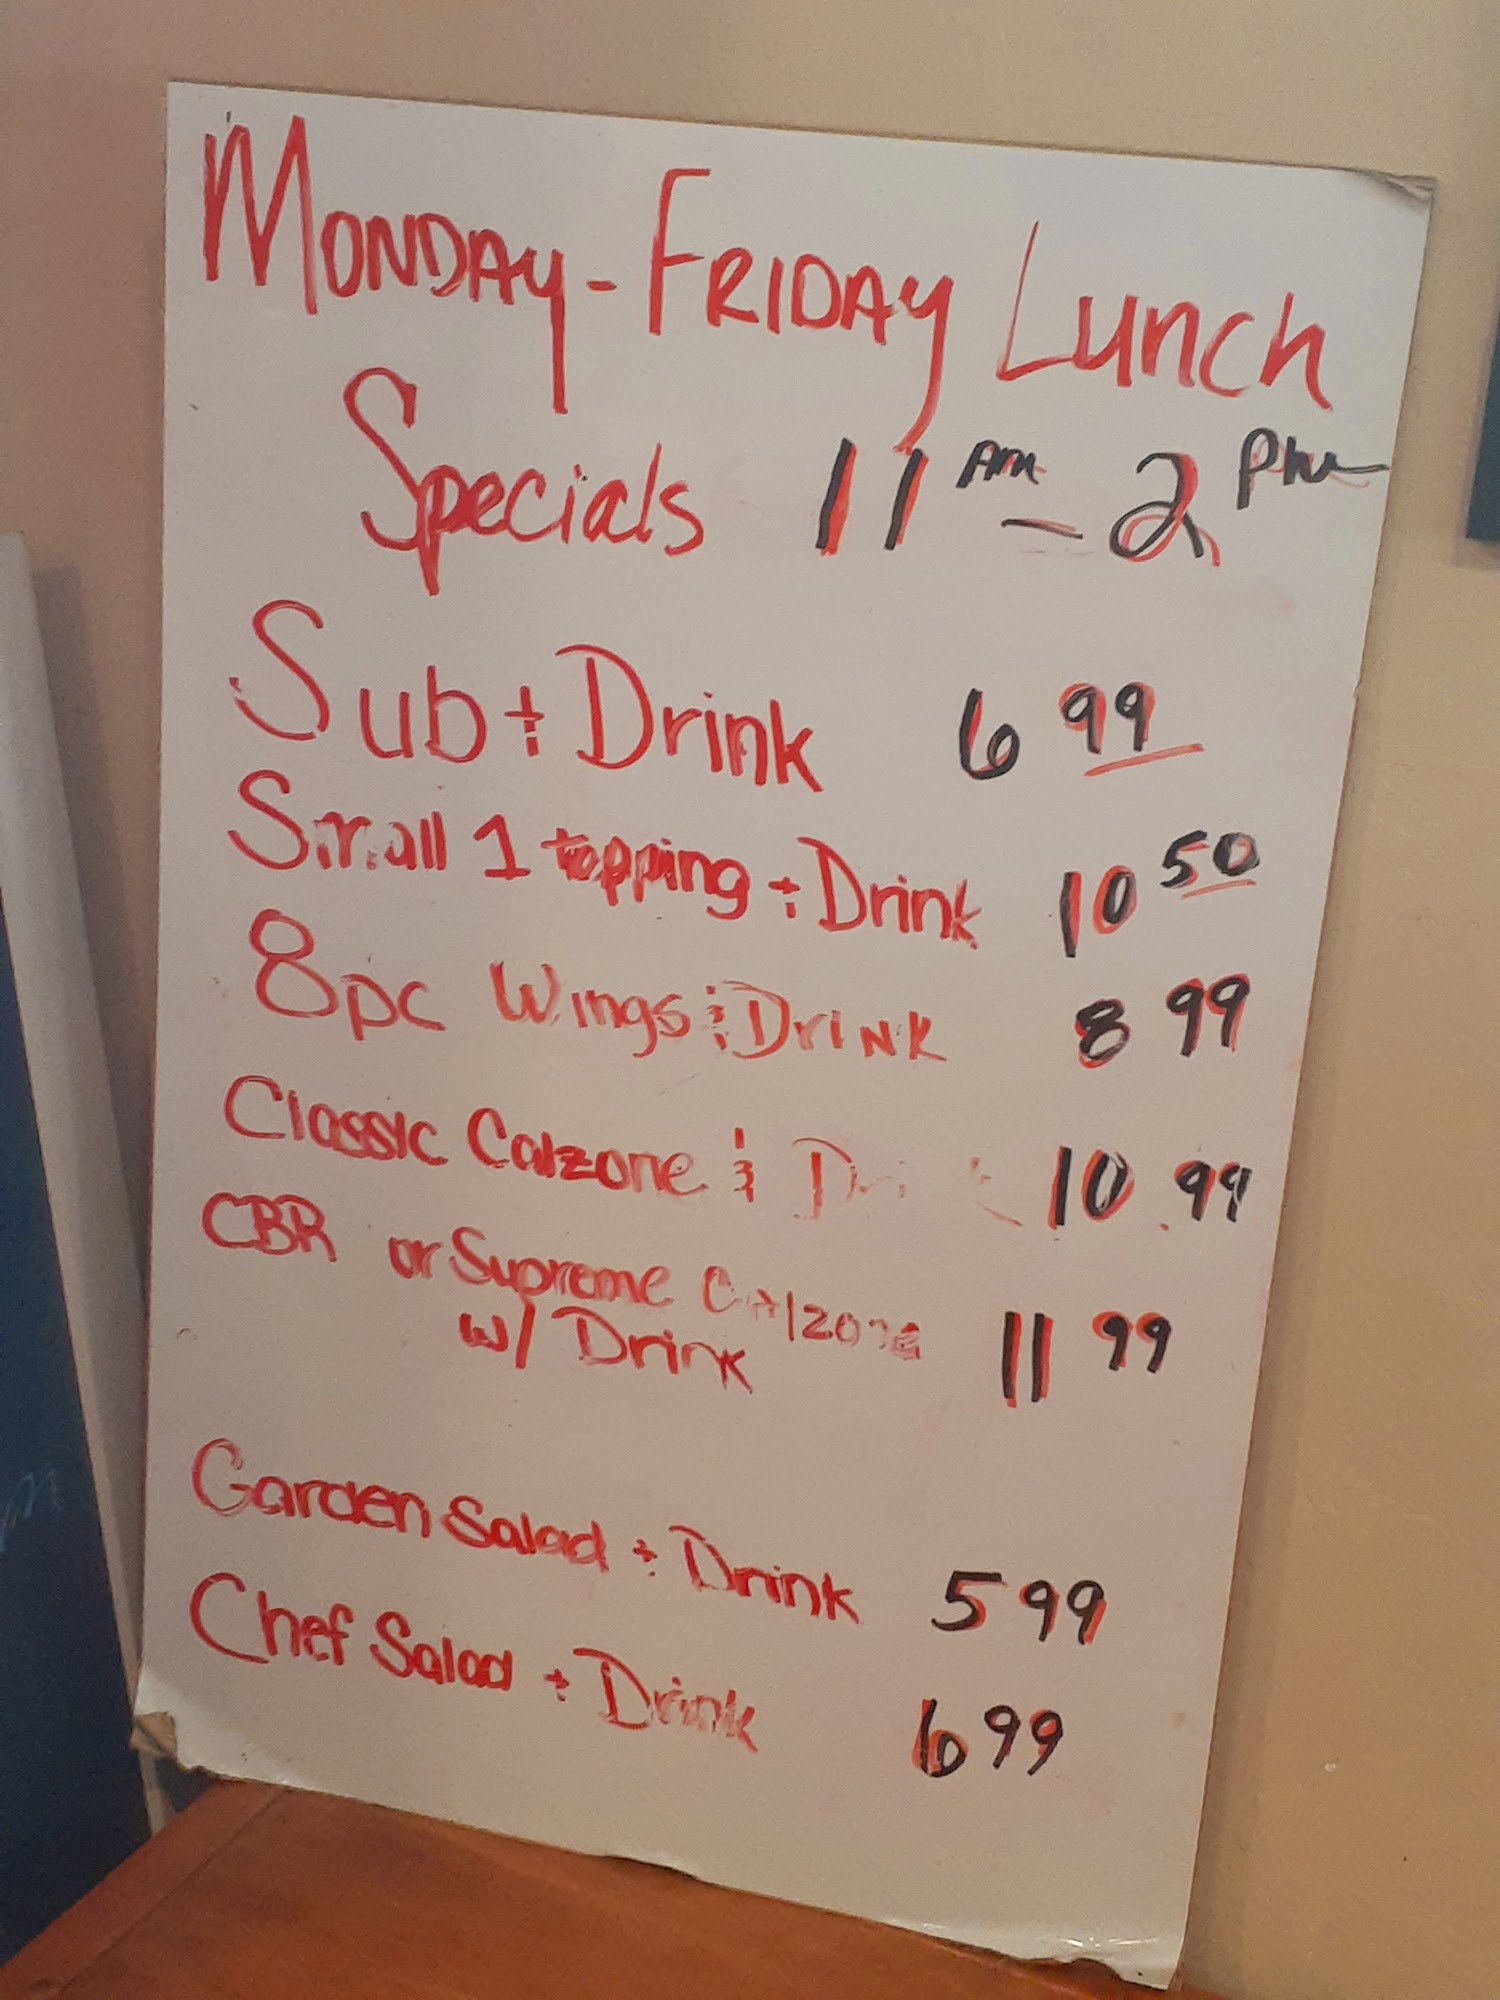 MONDAY - FRIDAY Lunch
Specials 11 AM - 2 PM
Sub + Drink 6 99
Small 1 topping + Drink 10 50
8pc Wings & Drink 8 99
Classic Calzone & Drink 10.99
CBR or Supreme Calzone 11 99
w/ Drink
Garden Salad + Drink 5 99
Chef Salad + Drink 6 99